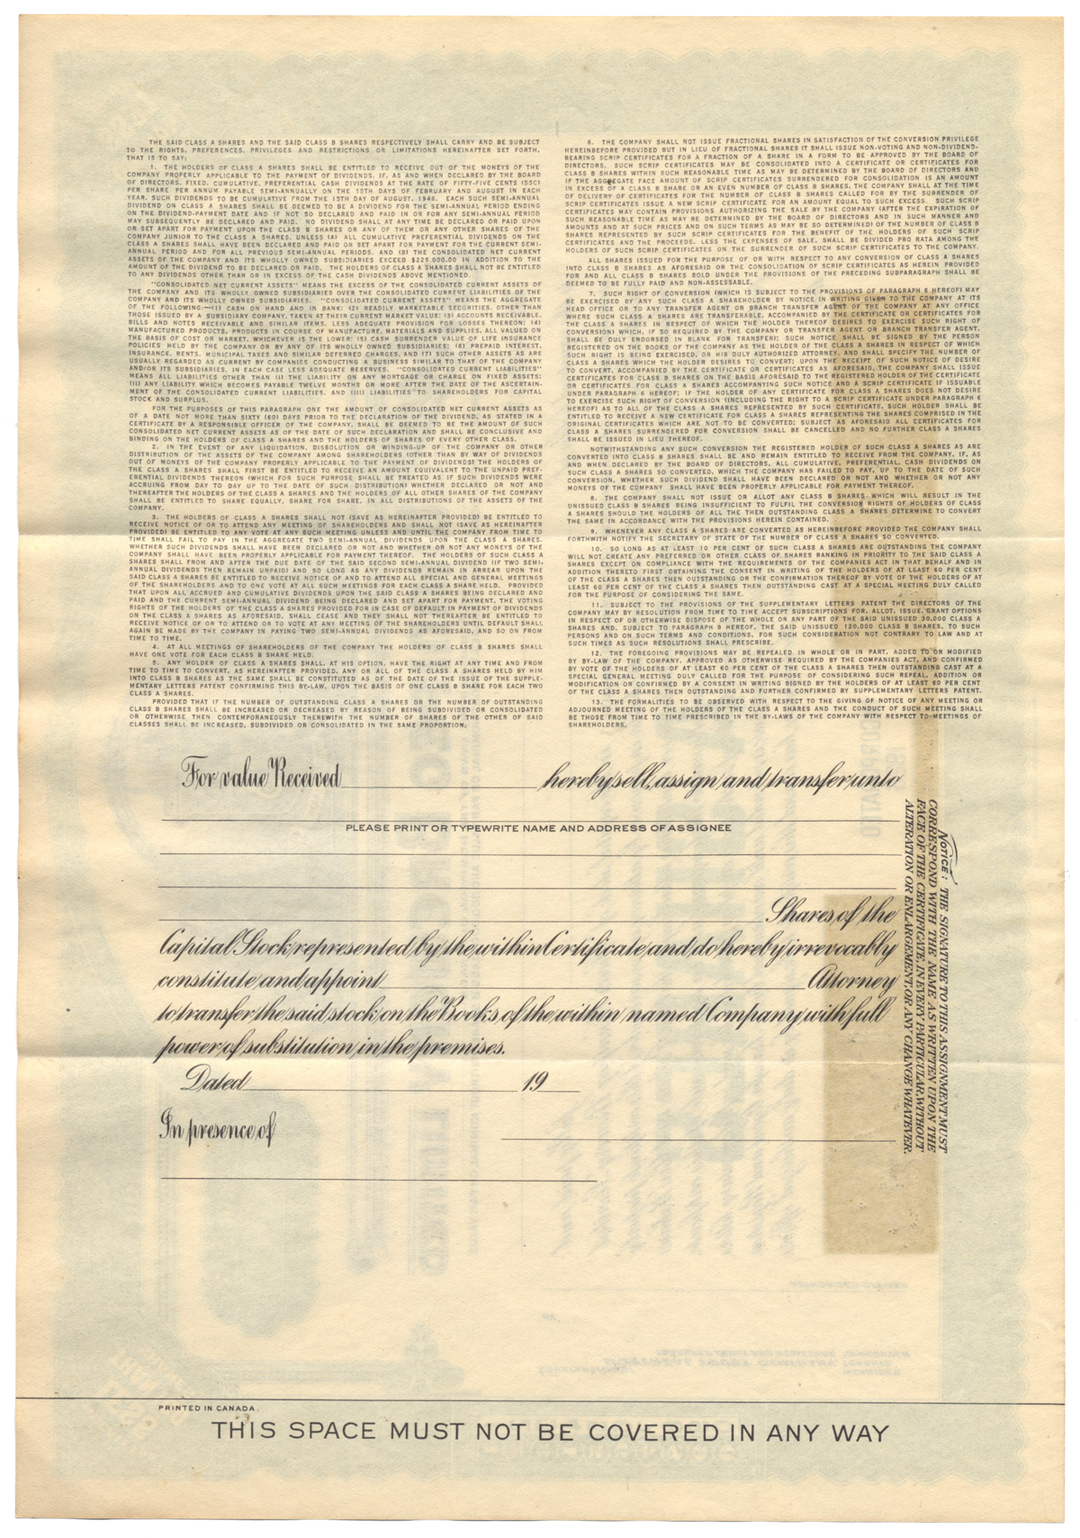 THE SAID CLASS A SHARES AND THE SAID CLASS B SHARES RESPECTIVELY SHALL CARRY AND BE SUBJECT
TO THE RIGHTS, PREFERENCES, PRIVILEGES AND RESTRICTIONS OR LIMITATIONS HEREINAFTER SET FORTH,
THAT IS TO SAY:
1. THE HOLDERS OF CLASS A SHARES SHALL BE ENTITLED TO RECEIVE OUT OF THE MONEYS OF THE
COMPANY PROPERLY APPLICABLE TO THE PAYMENT OF DIVIDENDS, IF, AS AND WHEN DECLARED BY THE BOARD
OF DIRECTORS, FIXED, CUMULATIVE, PREFERENTIAL CASH DIVIDENDS AT THE RATE OF FIFTY-FIVE CENTS (55C)
PER SHARE PER ANNUM PAYABLE, SEMI-ANNUALLY ON THE 15TH DAYS OF FEBRUARY AND AUGUST IN EACH
YEAR, SUCH DIVIDENDS TO BE CUMULATIVE FROM THE 15TH DAY OF AUGUST, 1946. EACH SUCH SEMI-ANNUAL
DIVIDEND ON CLASS A SHARES SHALL BE DEEMED TO BE A DIVIDEND FOR THE SEMI-ANNUAL PERIOD ENDING
ON THE DIVIDEND-PAYMENT DATE AND IF NOT SO DECLARED AND PAID IN OR FOR ANY SEMI-ANNUAL PERIOD
MAY SUBSEQUENTLY BE DECLARED AND PAID. NO DIVIDEND SHALL AT ANY TIME BE DECLARED OR PAID UPON
OR SET APART FOR PAYMENT UPON THE CLASS B SHARES OR ANY OF THEM OR ANY OTHER SHARES OF THE
COMPANY JUNIOR TO THE CLASS A SHARES, UNLESS (A) ALL CUMULATIVE PREFERENTIAL DIVIDENDS ON THE
CLASS A SHARES SHALL HAVE BEEN DECLARED AND PAID OR SET APART FOR PAYMENT FOR THE CURRENT SEMI-
ANNUAL PERIOD AND FOR ALL PREVIOUS SEMI-ANNUAL PERIODS, AND (B) THE CONSOLIDATED NET CURRENT
ASSETS OF THE COMPANY AND ITS WHOLLY OWNED SUBSIDIARIES EXCEED $225,000.00 IN ADDITION TO THE
AMOUNT OF THE DIVIDEND TO BE DECLARED OR PAID. THE HOLDERS OF CLASS A SHARES SHALL NOT BE ENTITLED
TO ANY DIVIDENDS OTHER THAN OR IN EXCESS OF THE CASH DIVIDENDS ABOVE MENTIONED.
"CONSOLIDATED NET CURRENT ASSETS" MEANS THE EXCESS OF THE CONSOLIDATED CURRENT ASSETS OF
THE COMPANY AND ITS WHOLLY OWNED SUBSIDIARIES OVER THE CONSOLIDATED CURRENT LIABILITIES OF THE
COMPANY AND ITS WHOLLY OWNED SUBSIDIARIES. "CONSOLIDATED CURRENT ASSETS" MEANS THE AGGREGATE
OF THE FOLLOWING—(1) CASH ON HAND AND IN BANK; (2) READILY MARKETABLE SECURITIES, OTHER THAN
THOSE ISSUED BY A SUBSIDIARY COMPANY, TAKEN AT THEIR CURRENT MARKET VALUE; (3) ACCOUNTS RECEIVABLE,
BILLS AND NOTES RECEIVABLE AND SIMILAR ITEMS, LESS ADEQUATE PROVISION FOR LOSSES THEREON; (4)
MANUFACTURED PRODUCTS, PRODUCTS IN COURSE OF MANUFACTURE, MATERIALS AND SUPPLIES, ALL VALUED ON
THE BASIS OF COST OR MARKET, WHICHEVER IS THE LOWER; (5) CASH SURRENDER VALUE OF LIFE INSURANCE
POLICIES HELD BY THE COMPANY OR BY ANY OF ITS WHOLLY OWNED SUBSIDIARIES; (6) PREPAID INTEREST,
INSURANCE, RENTS, MUNICIPAL TAXES AND SIMILAR DEFERRED CHARGES, AND (7) SUCH OTHER ASSETS AS ARE
USUALLY REGARDED AS CURRENT BY COMPANIES CONDUCTING A BUSINESS SIMILAR TO THAT OF THE COMPANY
AND/OR ITS SUBSIDIARIES, IN EACH CASE LESS ADEQUATE RESERVES. "CONSOLIDATED CURRENT LIABILITIES"
MEANS ALL LIABILITIES OTHER THAN (I) THE LIABILITY ON ANY MORTGAGE OR CHARGE ON FIXED ASSETS,
(II) ANY LIABILITY WHICH BECOMES PAYABLE TWELVE MONTHS OR MORE AFTER THE DATE OF THE ASCERTAIN-
MENT OF THE CONSOLIDATED CURRENT LIABILITIES, AND (III) LIABILITIES TO SHAREHOLDERS FOR CAPITAL
STOCK AND SURPLUS.
FOR THE PURPOSES OF THIS PARAGRAPH ONE THE AMOUNT OF CONSOLIDATED NET CURRENT ASSETS AS
OF A DATE NOT MORE THAN SIXTY (60) DAYS PRIOR TO THE DECLARATION OF THE DIVIDEND, AS STATED IN A
CERTIFICATE BY A RESPONSIBLE OFFICER OF THE COMPANY, SHALL BE DEEMED TO BE THE AMOUNT OF SUCH
CONSOLIDATED NET CURRENT ASSETS AS OF THE DATE OF SUCH DECLARATION AND SHALL BE CONCLUSIVE AND
BINDING ON THE HOLDERS OF CLASS A SHARES AND THE HOLDERS OF SHARES OF EVERY OTHER CLASS.
2. IN THE EVENT OF ANY LIQUIDATION, DISSOLUTION OR WINDING-UP OF THE COMPANY OR OTHER
DISTRIBUTION OF THE ASSETS OF THE COMPANY AMONG SHAREHOLDERS (OTHER THAN BY WAY OF DIVIDENDS
OUT OF MONEYS OF THE COMPANY PROPERLY APPLICABLE TO THE PAYMENT OF DIVIDENDS) THE HOLDERS OF
THE CLASS A SHARES SHALL FIRST BE ENTITLED TO RECEIVE AN AMOUNT EQUIVALENT TO THE UNPAID PREF-
ERENTIAL DIVIDENDS THEREON (WHICH FOR SUCH PURPOSE SHALL BE TREATED AS IF SUCH DIVIDENDS WERE
ACCRUING FROM DAY TO DAY UP TO THE DATE OF SUCH DISTRIBUTION) WHETHER DECLARED OR NOT AND
THEREAFTER THE HOLDERS OF THE CLASS A SHARES AND THE HOLDERS OF ALL OTHER SHARES OF THE COMPANY
SHALL BE ENTITLED TO SHARE EQUALLY, SHARE FOR SHARE, IN ALL DISTRIBUTIONS OF THE ASSETS OF THE
COMPANY.
3. THE HOLDERS OF CLASS A SHARES SHALL NOT (SAVE AS HEREINAFTER PROVIDED) BE ENTITLED TO
RECEIVE NOTICE OF OR TO ATTEND ANY MEETING OF SHAREHOLDERS AND SHALL NOT (SAVE AS HEREINAFTER
PROVIDED) BE ENTITLED TO ANY VOTE AT ANY SUCH MEETING UNLESS AND UNTIL THE COMPANY FROM TIME TO
TIME SHALL FAIL TO PAY IN THE AGGREGATE TWO SEMI-ANNUAL DIVIDENDS UPON THE CLASS A SHARES,
WHETHER SUCH DIVIDENDS SHALL HAVE BEEN DECLARED OR NOT AND WHETHER OR NOT ANY MONEYS OF THE
COMPANY SHALL HAVE BEEN PROPERLY APPLICABLE FOR PAYMENT THEREOF. THE HOLDERS OF SUCH CLASS A
SHARES SHALL FROM AND AFTER THE DUE DATE OF THE SAID SECOND SEMI-ANNUAL DIVIDEND (IF TWO SEMI-
ANNUAL DIVIDENDS THEN REMAIN UNPAID) AND SO LONG AS ANY DIVIDENDS REMAIN IN ARREAR UPON THE
SAID CLASS A SHARES BE ENTITLED TO RECEIVE NOTICE OF AND TO ATTEND ALL SPECIAL AND GENERAL MEETINGS
OF THE SHAREHOLDERS AND TO ONE VOTE AT ALL SUCH MEETINGS FOR EACH CLASS A SHARE HELD. PROVIDED
THAT UPON ALL ACCRUED AND CUMULATIVE DIVIDENDS UPON THE SAID CLASS A SHARES BEING DECLARED AND
PAID AND THE CURRENT SEMI-ANNUAL DIVIDEND BEING DECLARED AND SET APART FOR PAYMENT, THE VOTING
RIGHTS OF THE HOLDERS OF THE CLASS A SHARES PROVIDED FOR IN CASE OF DEFAULT IN PAYMENT OF DIVIDENDS
ON THE CLASS A SHARES AS AFORESAID, SHALL CEASE AND THEY SHALL NOT THEREAFTER BE ENTITLED TO
RECEIVE NOTICE OF OR TO ATTEND OR TO VOTE AT ANY MEETING OF THE SHAREHOLDERS UNTIL DEFAULT SHALL
AGAIN BE MADE BY THE COMPANY IN PAYING TWO SEMI-ANNUAL DIVIDENDS AS AFORESAID, AND SO ON FROM
TIME TO TIME.
4. AT ALL MEETINGS OF SHAREHOLDERS OF THE COMPANY THE HOLDERS OF CLASS B SHARES SHALL
HAVE ONE VOTE FOR EACH CLASS B SHARE HELD.
5. ANY HOLDER OF CLASS A SHARES SHALL, AT HIS OPTION, HAVE THE RIGHT AT ANY TIME AND FROM
TIME TO TIME TO CONVERT, AS HEREINAFTER PROVIDED, ANY OR ALL OF THE CLASS A SHARES HELD BY HIM
INTO CLASS B SHARES AS THE SAME SHALL BE CONSTITUTED AS OF THE DATE OF THE ISSUE OF THE SUPPLE-
MENTARY LETTERS PATENT CONFIRMING THIS BY-LAW, UPON THE BASIS OF ONE CLASS B SHARE FOR EACH TWO
CLASS A SHARES.
PROVIDED THAT IF THE NUMBER OF OUTSTANDING CLASS A SHARES OR THE NUMBER OF OUTSTANDING
CLASS B SHARES SHALL BE INCREASED OR DECREASED BY REASON OF BEING SUBDIVIDED OR CONSOLIDATED
OR OTHERWISE THEN CONTEMPORANEOUSLY THEREWITH THE NUMBER OF SHARES OF THE OTHER OF SAID
CLASSES SHALL BE INCREASED, SUBDIVIDED OR CONSOLIDATED IN THE SAME PROPORTION.
6. THE COMPANY SHALL NOT ISSUE FRACTIONAL SHARES IN SATISFACTION OF THE CONVERSION PRIVILEGE
HEREINBEFORE PROVIDED BUT IN LIEU OF FRACTIONAL SHARES IT SHALL ISSUE NON-VOTING AND NON-DIVIDEND-
BEARING SCRIP CERTIFICATES FOR A FRACTION OF A SHARE IN A FORM TO BE APPROVED BY THE BOARD OF
DIRECTORS. SUCH SCRIP CERTIFICATES MAY BE CONSOLIDATED INTO A CERTIFICATE OR CERTIFICATES FOR
CLASS B SHARES WITHIN SUCH REASONABLE TIME AS MAY BE DETERMINED BY THE BOARD OF DIRECTORS AND
IF THE AGGREGATE FACE AMOUNT OF SCRIP CERTIFICATES SURRENDERED FOR CONSOLIDATION IS AN AMOUNT
IN EXCESS OF A CLASS B SHARE OR AN EVEN NUMBER OF CLASS B SHARES, THE COMPANY SHALL AT THE TIME
OF DELIVERY OF CERTIFICATES FOR THE NUMBER OF CLASS B SHARES CALLED FOR BY THE SURRENDER OF
SCRIP CERTIFICATES ISSUE A NEW SCRIP CERTIFICATE FOR AN AMOUNT EQUAL TO SUCH EXCESS. SUCH SCRIP
CERTIFICATES MAY CONTAIN PROVISIONS AUTHORIZING THE SALE BY THE COMPANY (AFTER THE EXPIRATION OF
SUCH REASONABLE TIME AS MAY BE DETERMINED BY THE BOARD OF DIRECTORS AND IN SUCH MANNER AND
AMOUNTS AND AT SUCH PRICES AND ON SUCH TERMS AS MAY BE SO DETERMINED) OF THE NUMBER OF CLASS B
SHARES REPRESENTED BY SUCH SCRIP CERTIFICATES FOR THE BENEFIT OF THE HOLDERS OF SUCH SCRIP
CERTIFICATES AND THE PROCEEDS, LESS THE EXPENSES OF SALE, SHALL BE DIVIDED PRO RATA AMONG THE
HOLDERS OF SUCH SCRIP CERTIFICATES ON THE SURRENDER OF SUCH SCRIP CERTIFICATES TO THE COMPANY.
ALL SHARES ISSUED FOR THE PURPOSE OF OR WITH RESPECT TO ANY CONVERSION OF CLASS A SHARES
INTO CLASS B SHARES AS AFORESAID OR THE CONSOLIDATION OF SCRIP CERTIFICATES AS HEREIN PROVIDED
FOR AND ALL CLASS B SHARES SOLD UNDER THE PROVISIONS OF THE PRECEDING SUBPARAGRAPH SHALL BE
DEEMED TO BE FULLY PAID AND NON-ASSESSABLE.
7. SUCH RIGHT OF CONVERSION (WHICH IS SUBJECT TO THE PROVISIONS OF PARAGRAPH 8 HEREOF) MAY
BE EXERCISED BY ANY SUCH CLASS A SHAREHOLDER BY NOTICE IN WRITING GIVEN TO THE COMPANY AT ITS
HEAD OFFICE OR TO ANY TRANSFER AGENT OR BRANCH TRANSFER AGENT OF THE COMPANY AT ANY OFFICE
WHERE SUCH CLASS A SHARES ARE TRANSFERABLE, ACCOMPANIED BY THE CERTIFICATE OR CERTIFICATES FOR
THE CLASS A SHARES IN RESPECT OF WHICH THE HOLDER THEREOF DESIRES TO EXERCISE SUCH RIGHT OF
CONVERSION) WHICH, IF SO REQUIRED BY THE COMPANY OR TRANSFER AGENT OR BRANCH TRANSFER AGENT,
SHALL BE DULY ENDORSED IN BLANK FOR TRANSFER); SUCH NOTICE SHALL BE SIGNED BY THE PERSON
REGISTERED ON THE BOOKS OF THE COMPANY AS THE HOLDER OF THE CLASS A SHARES IN RESPECT OF WHICH
SUCH RIGHT IS BEING EXERCISED, OR HIS DULY AUTHORIZED ATTORNEY, AND SHALL SPECIFY THE NUMBER OF
CLASS A SHARES WHICH THE HOLDER DESIRES TO CONVERT; UPON THE RECEIPT OF SUCH NOTICE OF DESIRE
TO CONVERT, ACCOMPANIED BY THE CERTIFICATE OR CERTIFICATES AS AFORESAID, THE COMPANY SHALL ISSUE
CERTIFICATES FOR CLASS B SHARES ON THE BASIS AFORESAID TO THE REGISTERED HOLDER OF THE CERTIFICATE
OR CERTIFICATES FOR CLASS A SHARES ACCOMPANYING SUCH NOTICE AND A SCRIP CERTIFICATE IF ISSUABLE
UNDER PARAGRAPH 6 HEREOF; IF THE HOLDER OF ANY CERTIFICATE FOR CLASS A SHARES DOES NOT DESIRE
TO EXERCISE SUCH RIGHT OF CONVERSION (INCLUDING THE RIGHT TO A SCRIP CERTIFICATE UNDER PARAGRAPH 6
HEREOF) AS TO ALL OF THE CLASS A SHARES REPRESENTED BY SUCH CERTIFICATE, SUCH HOLDER SHALL BE
ENTITLED TO RECEIVE A NEW CERTIFICATE FOR CLASS A SHARES REPRESENTING THE SHARES COMPRISED IN THE
ORIGINAL CERTIFICATES WHICH ARE NOT TO BE CONVERTED; SUBJECT AS AFORESAID ALL CERTIFICATES FOR
CLASS A SHARES SURRENDERED FOR CONVERSION SHALL BE CANCELLED AND NO FURTHER CLASS A SHARES
SHALL BE ISSUED IN LIEU THEREOF.
NOTWITHSTANDING ANY SUCH CONVERSION THE REGISTERED HOLDER OF SUCH CLASS A SHARES AS ARE
CONVERTED INTO CLASS B SHARES SHALL BE AND REMAIN ENTITLED TO RECEIVE FROM THE COMPANY, IF, AS
AND WHEN DECLARED BY THE BOARD OF DIRECTORS, ALL CUMULATIVE, PREFERENTIAL, CASH DIVIDENDS ON
SUCH CLASS A SHARES SO CONVERTED, WHICH THE COMPANY HAS FAILED TO PAY, UP TO THE DATE OF SUCH
CONVERSION, WHETHER SUCH DIVIDEND SHALL HAVE BEEN DECLARED OR NOT AND WHETHER OR NOT ANY
MONEYS OF THE COMPANY SHALL HAVE BEEN PROPERLY APPLICABLE FOR PAYMENT THEREOF.
8. THE COMPANY SHALL NOT ISSUE OR ALLOT ANY CLASS B SHARES WHICH WILL RESULT IN THE
UNISSUED CLASS B SHARES BEING INSUFFICIENT TO FULFIL THE CONVERSION RIGHTS OF HOLDERS OF CLASS
A SHARES SHOULD THE HOLDERS OF ALL THE THEN OUTSTANDING CLASS A SHARES DETERMINE TO CONVERT
THE SAME IN ACCORDANCE WITH THE PROVISIONS HEREIN CONTAINED.
9. WHENEVER ANY CLASS A SHARES ARE CONVERTED AS HEREINBEFORE PROVIDED THE COMPANY SHALL
FORTHWITH NOTIFY THE SECRETARY OF STATE OF THE NUMBER OF CLASS A SHARES SO CONVERTED.
10. SO LONG AS AT LEAST 10 PER CENT OF SUCH CLASS A SHARES ARE OUTSTANDING THE COMPANY
WILL NOT CREATE ANY PREFERRED OR OTHER CLASS OF SHARES RANKING IN PRIORITY TO THE SAID CLASS A
SHARES EXCEPT ON COMPLIANCE WITH THE REQUIREMENTS OF THE COMPANIES ACT IN THAT BEHALF AND IN
ADDITION THERETO FIRST OBTAINING THE CONSENT IN WRITING OF THE HOLDERS OF AT LEAST 60 PER CENT
OF THE CLASS A SHARES THEN OUTSTANDING OR THE CONFIRMATION THEREOF BY VOTE OF THE HOLDERS OF AT
LEAST 60 PER CENT OF THE CLASS A SHARES THEN OUTSTANDING CAST AT A SPECIAL MEETING DULY CALLED
FOR THE PURPOSE OF CONSIDERING THE SAME.
11. SUBJECT TO THE PROVISIONS OF THE SUPPLEMENTARY LETTERS PATENT THE DIRECTORS OF THE
COMPANY MAY BY RESOLUTION FROM TIME TO TIME ACCEPT SUBSCRIPTIONS FOR, ALLOT, ISSUE, GRANT OPTIONS
IN RESPECT OF OR OTHERWISE DISPOSE OF THE WHOLE OR ANY PART OF THE SAID UNISSUED 30,000 CLASS A
SHARES AND, SUBJECT TO PARAGRAPH 8 HEREOF, THE SAID UNISSUED 120,000 CLASS B SHARES, TO SUCH
PERSONS AND ON SUCH TERMS AND CONDITIONS, FOR SUCH CONSIDERATION NOT CONTRARY TO LAW AND AT
SUCH TIMES AS SUCH RESOLUTIONS SHALL PRESCRIBE.
12. THE FOREGOING PROVISIONS MAY BE REPEALED IN WHOLE OR IN PART, ADDED TO OR MODIFIED
BY BY-LAW OF THE COMPANY, APPROVED AS OTHERWISE REQUIRED BY THE COMPANIES ACT, AND CONFIRMED
BY VOTE OF THE HOLDERS OF AT LEAST 60 PER CENT OF THE CLASS A SHARES THEN OUTSTANDING CAST AT A
SPECIAL GENERAL MEETING DULY CALLED FOR THE PURPOSE OF CONSIDERING SUCH REPEAL, ADDITION OR
MODIFICATION OR CONFIRMED BY A CONSENT IN WRITING SIGNED BY THE HOLDERS OF AT LEAST 60 PER CENT
OF THE CLASS A SHARES THEN OUTSTANDING AND FURTHER CONFIRMED BY SUPPLEMENTARY LETTERS PATENT.
13. THE FORMALITIES TO BE OBSERVED WITH RESPECT TO THE GIVING OF NOTICE OF ANY MEETING OR
ADJOURNED MEETING OF THE HOLDERS OF THE CLASS A SHARES AND THE CONDUCT OF SUCH MEETING SHALL
BE THOSE FROM TIME TO TIME PRESCRIBED IN THE BY-LAWS OF THE COMPANY WITH RESPECT TO MEETINGS OF
SHAREHOLDERS.
For value Received hereby sell, assign and transfer unto
PLEASE PRINT OR TYPEWRITE NAME AND ADDRESS OF ASSIGNEE
Shares of the
Capital Stock represented by the within Certificate and do hereby irrevocably
constitute and appoint Attorney
to transfer the said stock on the Books of the within named Company with full
power of substitution in the premises.
Dated 19
In presence of
NOTICE: THE SIGNATURE TO THIS ASSIGNMENT MUST
CORRESPOND WITH THE NAME AS WRITTEN UPON THE
FACE OF THE CERTIFICATE, IN EVERY PARTICULAR WITHOUT
ALTERATION OR ENLARGEMENT, OR ANY CHANGE WHATEVER.
PRINTED IN CANADA.
THIS SPACE MUST NOT BE COVERED IN ANY WAY